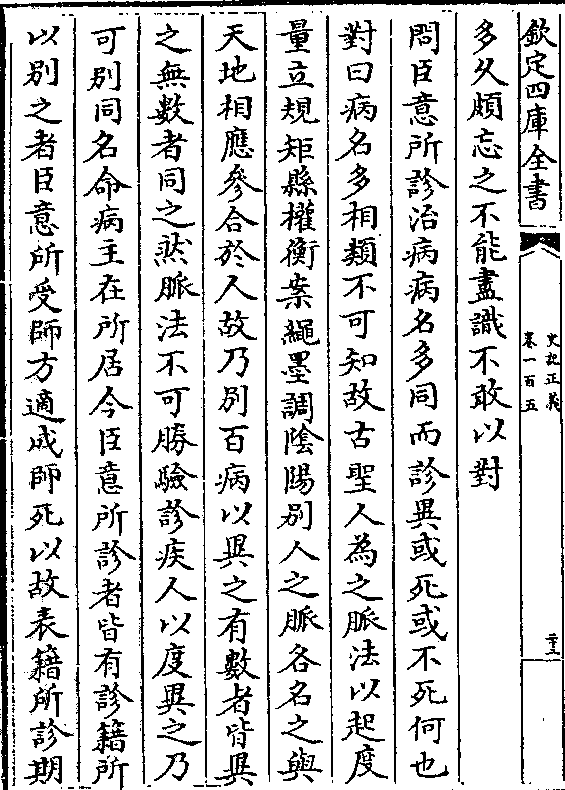 欽定四庫全書
史記正義
卷一百五
二十三
多久頗忘之不能盡識不敢以對
問臣意所診治病病名多同而診異或死或不死何也
對曰病名多相類不可知故古聖人為之脈法以起度
量立規矩縣權衡案繩墨調陰陽別人之脈各名之與
天地相應參合於人故乃別百病以異之有數者皆異
之無數者同之然脈法不可勝驗診疾人以度異之乃
可別同名命病主在所居今臣意所診者皆有診籍所
以別之者臣意所受師方適成師死以故表籍所診期